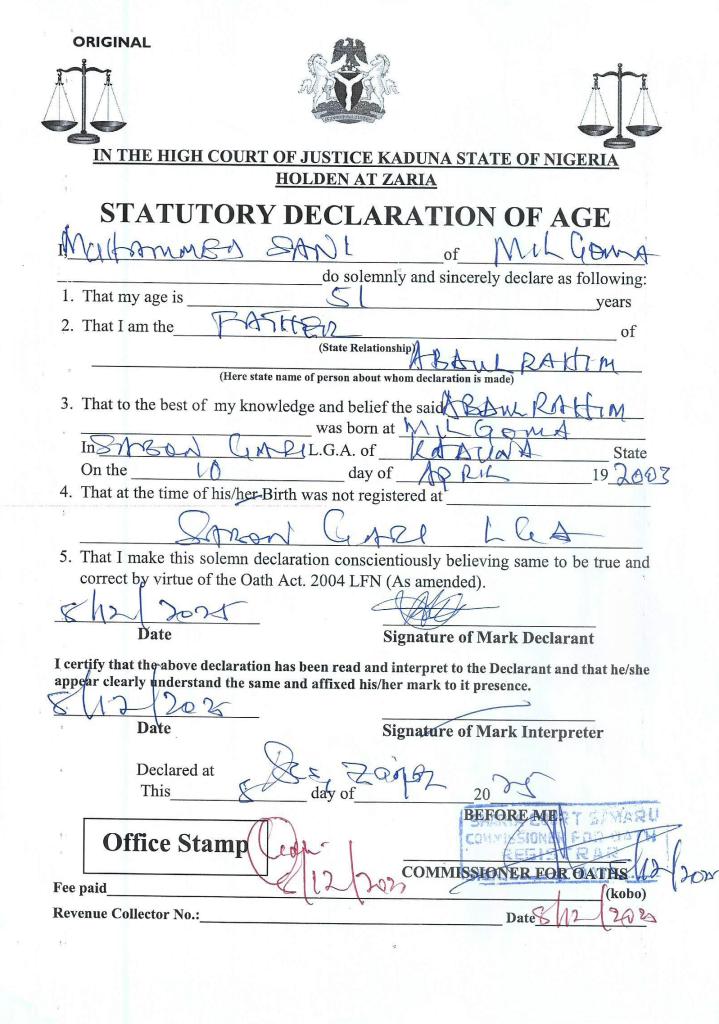 ORIGINAL
IN THE HIGH COURT OF JUSTICE KADUNA STATE OF NIGERIA
HOLDEN AT ZARIA
STATUTORY DECLARATION OF AGE
I, MUHAMMED SANI of MIL GOMA
do solemnly and sincerely declare as following:
1. That my age is 51 years
2. That I am the FATHER of
(State Relationship) ABDUL RAHIM
(Here state name of person about whom declaration is made)
3. That to the best of my knowledge and belief the said ABDUL RAHIM
was born at MIL GOMA
In SABON GARI L.G.A. of KADUNA State
On the 10 day of APRIL 19 2003
4. That at the time of his/her Birth was not registered at
SABON GARI LGA
5. That I make this solemn declaration conscientiously believing same to be true and
correct by virtue of the Oath Act. 2004 LFN (As amended).
8/12/2025
Date Signature of Mark Declarant
I certify that the above declaration has been read and interpret to the Declarant and that he/she
appear clearly understand the same and affixed his/her mark to it presence.
8/12/2025
Date Signature of Mark Interpreter
Declared at Zaria
This 8 day of 2025
BEFORE ME
SHARIA COURT SAMARU
COMMISSIONER FOR OATH
REGISTRAR
Office Stamp
8/12/2025
COMMISSIONER FOR OATHS 8/12/2025
Fee paid (kobo)
Revenue Collector No.: Date 8/12/2025